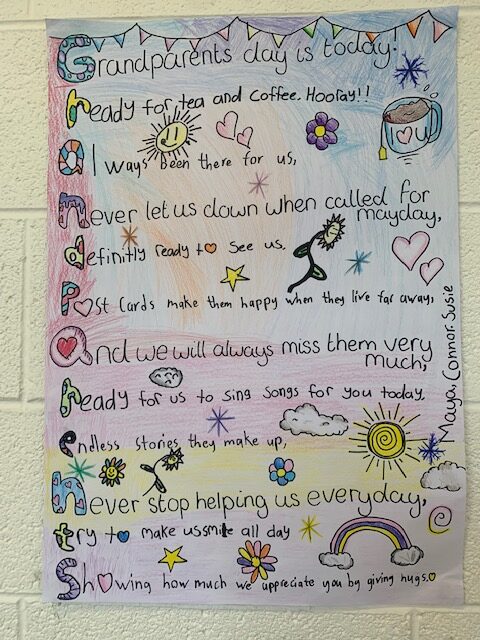 Grandparents day is today!
ready for tea and coffee. Hooray!!
I ♡ U
always been there for us,
never let us down when called for
mayday,
definitly ready to see us,
Post Cards make them happy when they live far away,
And we will always miss them very
much,
ready for us to sing songs for you today,
endless stories they make up,
never stop helping us everyday,
try to make us smile all day
Showing how much we appreciate you by giving hugs.
Maya, Connor, Susie